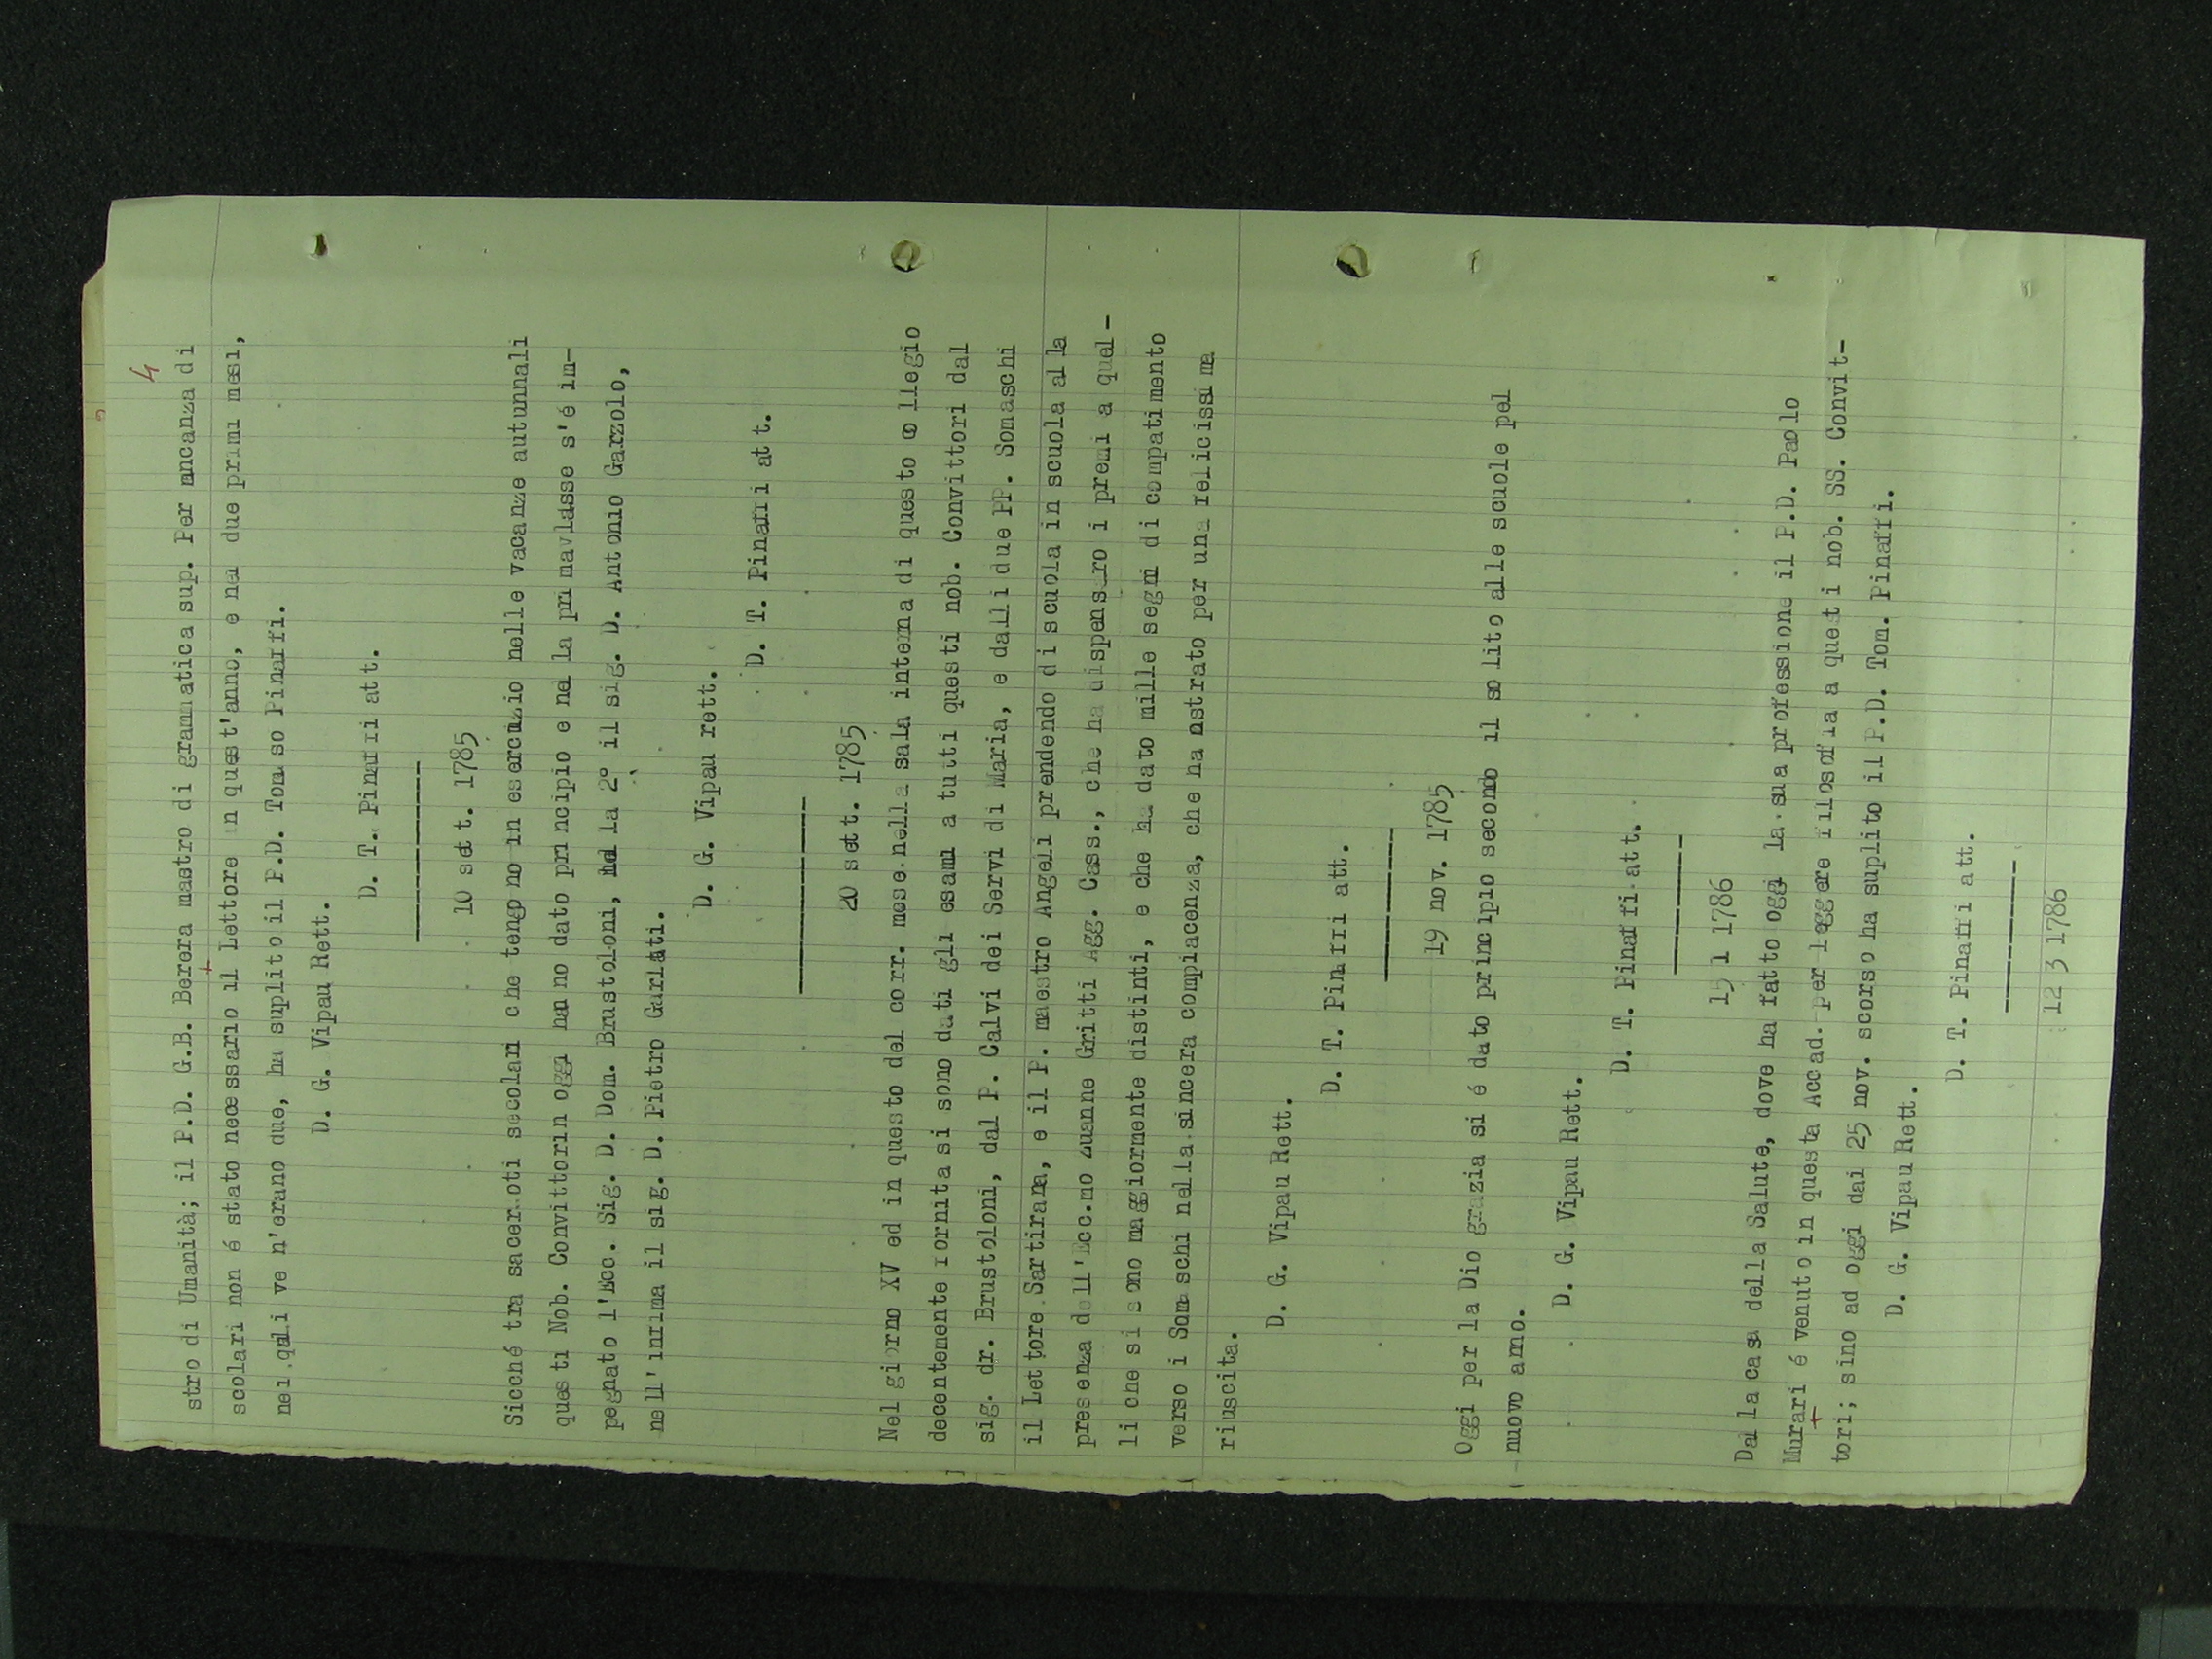 4
stro di Umanità; il P.D. G.B. Berera mastro di grammatica sup. Per mncanza di
scolari non é stato necessario il Lettore in quest'anno, e nei due primi mesi,
nei quali ve n'erano due, ha suplito il P.D. Tomaso Pinaffi.
D. G. Vipau Rett.
D. T. Pinaffi att.
10 sett. 1785
Sicché tra sacerdoti secolari che tengono in esercizio nelle vacanze autunnali
questi Nob. Convittorin oggi hanno dato principio e nella primavlasse s'é im-
pegnato l'Ecc. Sig. D. Dom. Brustoloni, nella 2° il sig. D. Antonio Garzolo,
nell'infima il sig. D. Pietro Garlati.
D. G. Vipau rett.
D. T. Pinaffi att.
20 sett. 1785
Nel giorno XV ed in questo del corr. mese nella sala interna di questo collegio
decentemente fornita si sono dati gli esami a tutti questi nob. Convittori dal
sig. dr. Brustoloni, dal P. Calvi dei Servi di Maria, e dalli due PP. Somaschi
il Lettore Sartirana, e il P. maestro Angeli prendendo di scuola in scuola alla
presenza dell'Ecc.mo Zuanne Gritti Agg. Cass., che ha dispensaro i premi a quel-
li che si sono maggiormente distinti, e che ha dato mille segni di compatimento
verso i Somaschi nella sincera compiacenza, che ha mstrato per una felicissima
riuscita.
D. G. Vipau Rett.
D. T. Pinaffi att.
19 nov. 1785
Oggi per la Dio grazia si é dato principio secondo il solito alle scuole pel
nuovo anno.
D. G. Vipau Rett.
D. T. Pinaffi att.
15 1 1786
Dalla casa della Salute, dove ha fatto oggi la sua professione il P.D. Paolo
Murari é venuto in questa Accad. per leggere filosofia a questi nob. SS. Convit-
tori; sino ad oggi dai 25 nov. scorso ha suplito il P.D. Tom. Pinaffi.
D. G. Vipau Rett.
D. T. Pinaffi att.
12 3 1786